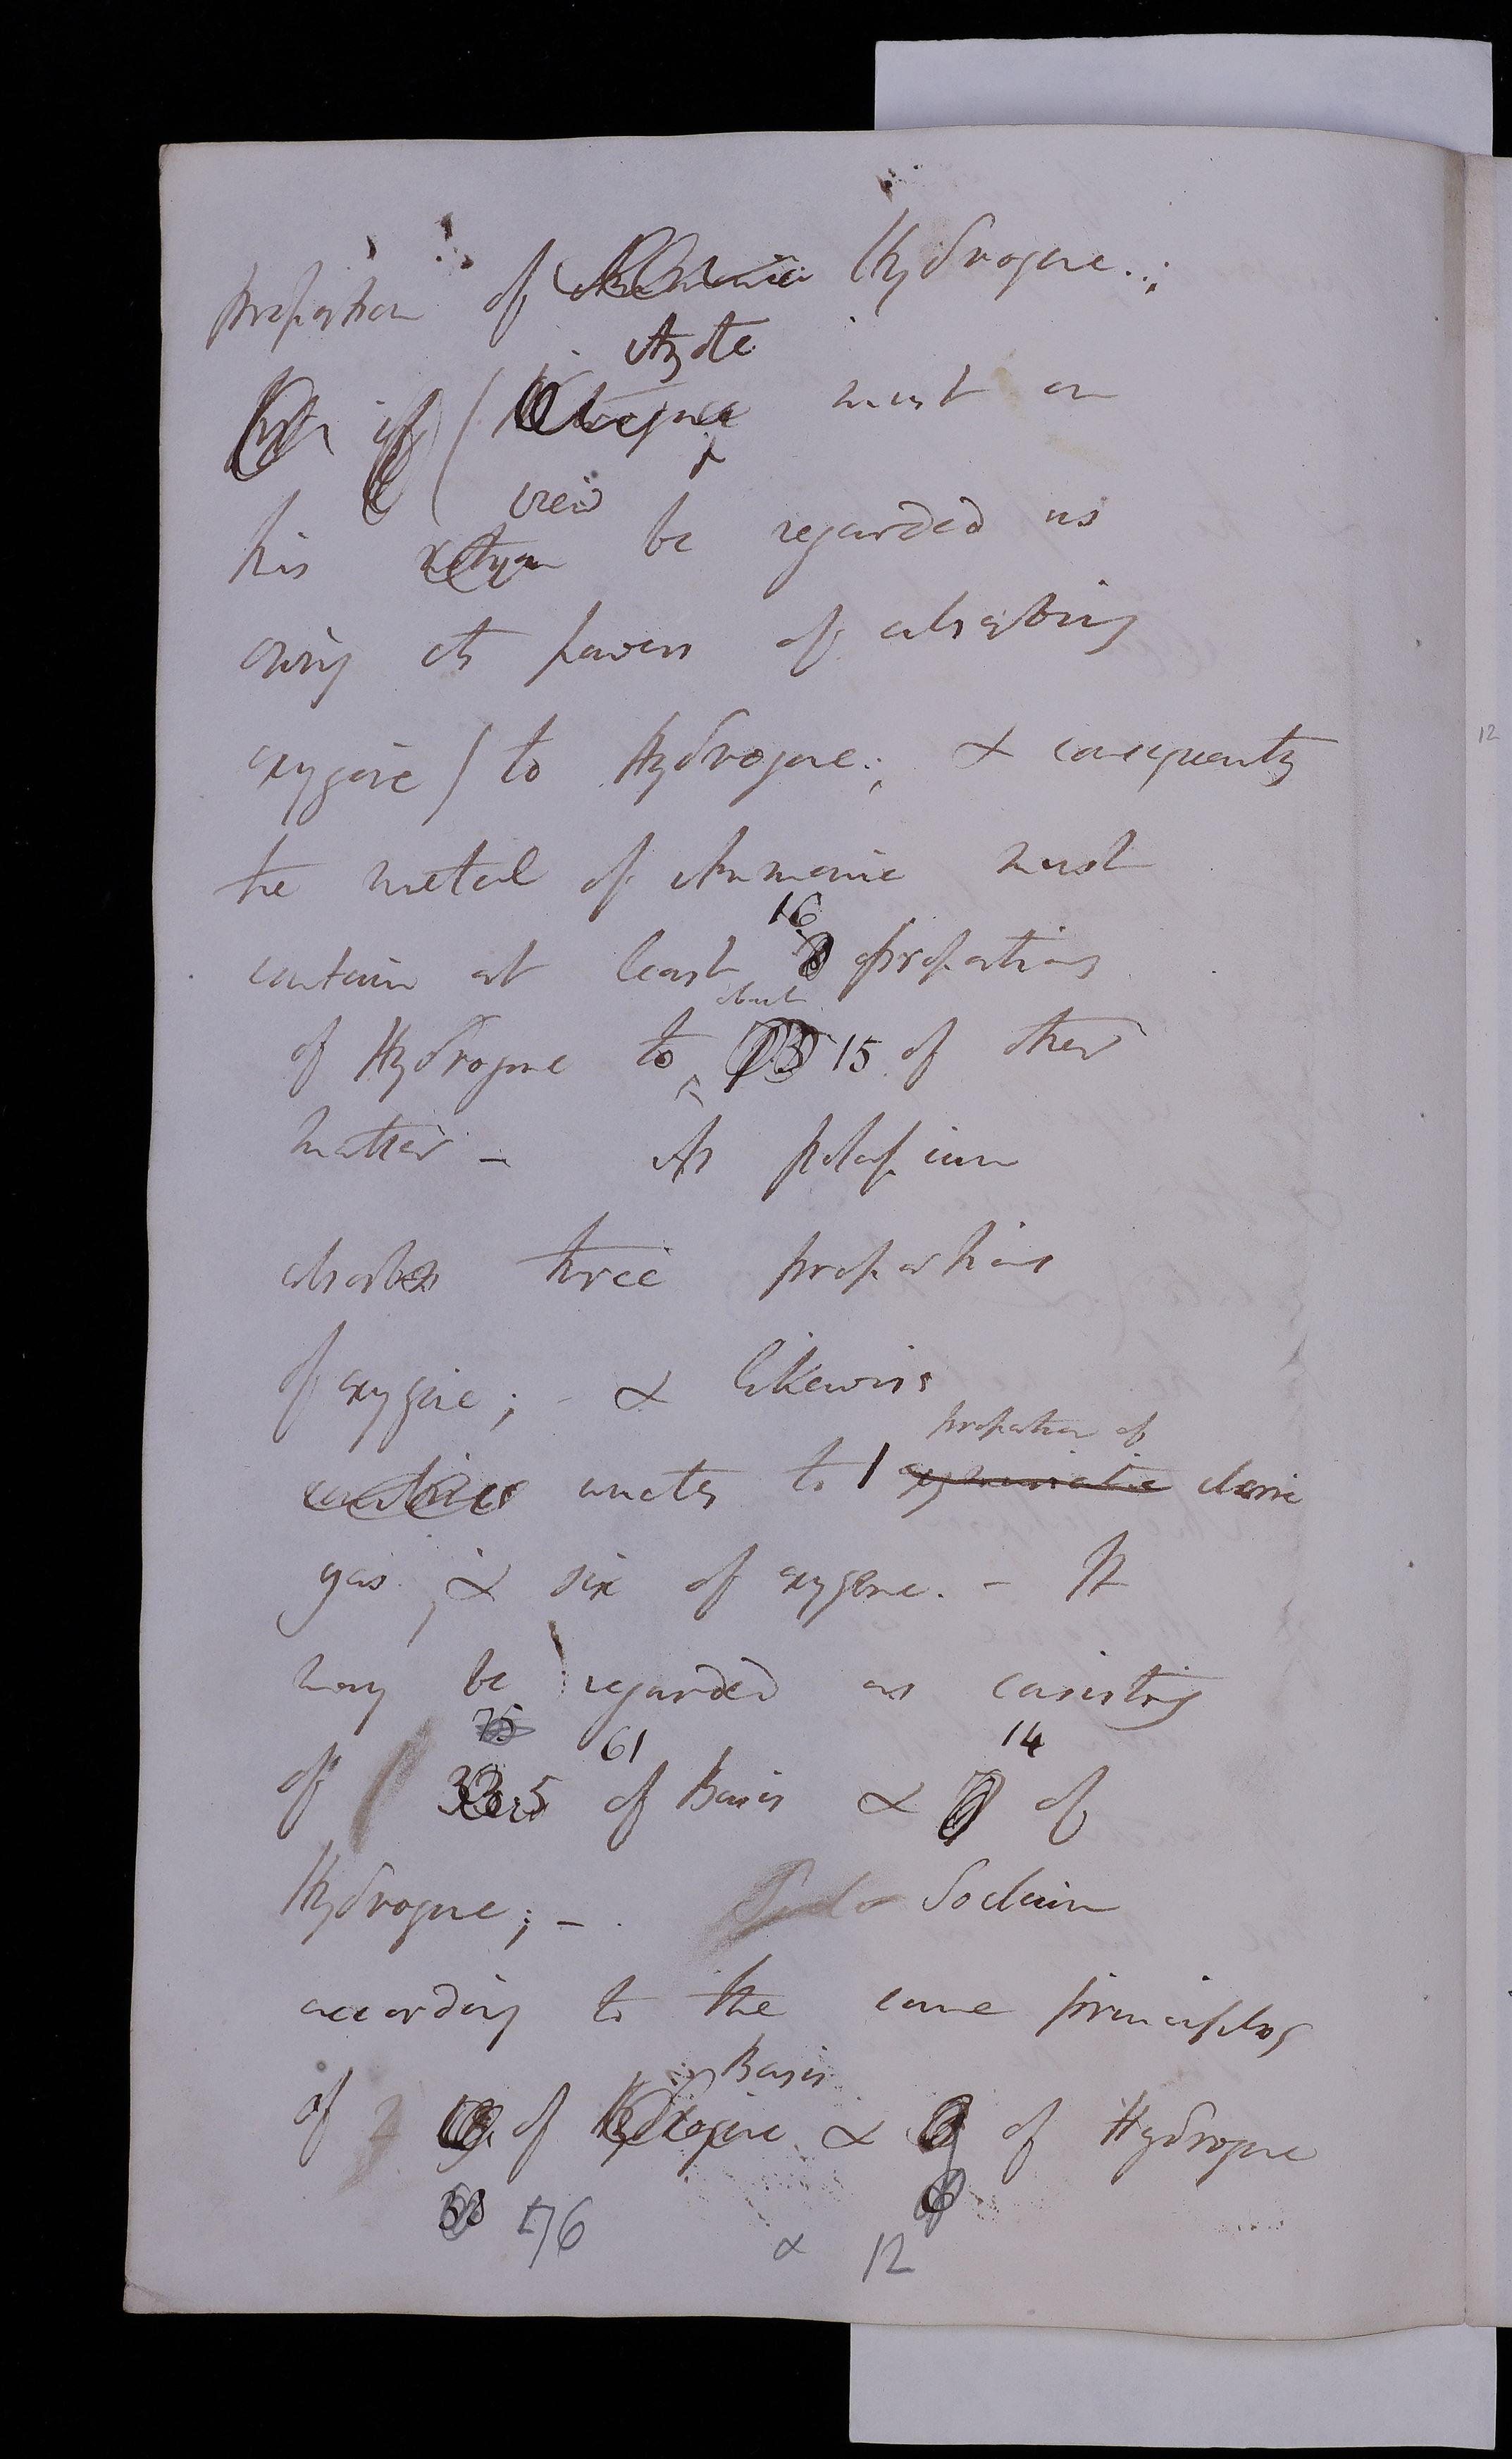 proportion of Hydrogene.;
Azote
( must on
view
this be regarded as
owing its powers of absorbing
oxygene) to Hydrogene; & consequently
the metal of Ammonia must
16
contain at least proportions
about
of Hydrogene to 15 of other
matter – As potassium
absorbs three proportions
of oxygene; - & likewise
proportion of
unites to 1 chlorine
gas, & six of oxygene. – It
may be regarded as consisting
75 61 14
of 33.5 of Basis & of
Hydrogene; – . Sodium
according to the same principles
Basis
of of Hydrogene & of Hydrogene
58 76 & 12
12